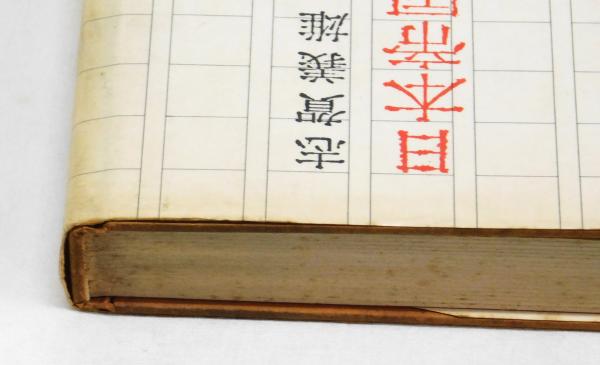 日本帝
志賀義雄